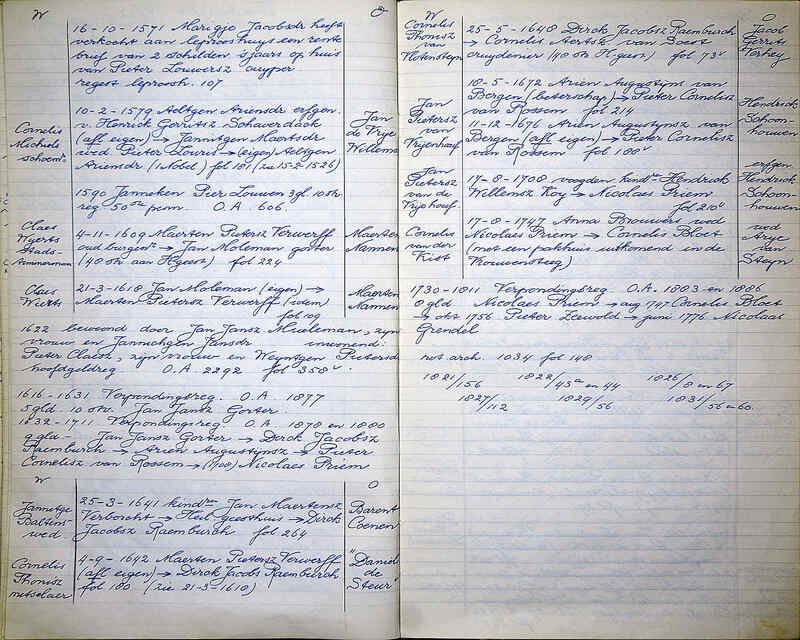 W
O
16-10-1571 Marigje Jacobsdr heeft
verkocht aan leprooshuys een rente
brief van 2 schilden sjaars op huis
van Pieter Louwersz cuyper
regest leproosh. 107
10-2-1579 Aeltgen Ariensdr erfgen.
v. Henrick Gerritsz Schauwerdack
(afl eigen) → Jannitgen Maertsdr
wed Pieter Louris → (eigen) Aeltgen
Ariensdr (1 Nobel) fol 181 (zie 15-2-1526)
Cornelis
Michiels
schoenm.
Jan
de Vrye
Willems
1590 Janneken Pier Louwen 3 gl 10 st.
reg 50ste penn. O.A. 606
Claes
Wyerts
Stads-
timmerman
4-11-1609 Maerten Pietersz Verwerff
oud burgem → Jan Moleman gorter
(48 st. aan Hgeest) fol 224
Maerten
Nannen
Claes
Wierts
21-3-1618 Jan Moleman (eigen) →
Maerten Pietersz Verwerff (idem)
fol 109
Maerten
Nannen
1622 bewoond door Jan Jansz Meuleman, zijn
vrouw en Jannichgen Jansdr inwonend:
Pieter Claesz, zijn vrouw en Weyntgen Pietersd
hoofdgeldreg O.A. 2292 fol 358v
1616-1631 Verpondingsreg. O.A. 1877
5 gld. 10 st. Jan Jansz Gorter.
1632-1711 Verpondingsreg. O.A. 1878 en 1880
9 gld - Jan Jansz Gorter → Dirck Jacobsz
Raemburch → Arien Augustijnsz → Pieter
Cornelisz van Rossem → (1708) Nicolaes Priem
W
O
Jannetge
Baltens
wed.
25-3-1641 kindren Jan Maertensz
Verborcht → Heil. geesthuis → Dirck
Jacobsz Raemburch fol 264
Barent
Coenen
Cornelis
Thonisz
metselaer
4-9-1642 Maerten Pietersz Verwerff
(afl eigen) → Dirck Jacobs Raemburch
fol 180 (zie 21-3-1618)
"Daniel
de
Steur"
W
O
Cornelis
Thonisz
van
Vlotensteyn
25-5-1648 Dirck Jacobsz Raemburch
→ Cornelis Aertsz van Soest
cruydenier (48 st. H. geest) fol 73v
Jacob
Gerrits
Verhey
Jan
Pietersz
van
Vrijenhoef
18-5-1672 Arien Augustijns van
Bergen (beterschap) → Pieter Cornelis
van Rossem fol 214
1-12-1676 Arien Augustijnsz van
Bergen (afl eigen) → Pieter Cornelisz
van Rossem fol 188v
Hendrick
Schoon-
houwen
Jan
Pietersz
van de
Vrijehouf
17-8-1708 voogden kindren Hendrick
Willemsz Koy → Nicolaes Priem
fol 210v
erfgen
Hendrick
Schoon-
houwen
Cornelis
van der
Kist
17-8-1747 Anna Brouwers wed
Nicolaes Priem → Cornelis Bloet
(met een pakhuis uitkomend in de
Vrouwensteeg)
wed
Arye
van
Steyn
1730-1811 Verpondingsreg. O.A. 1883 en 1886
8 gld Nicolaes Priem → aug 1747 Cornelis Bloet
→ okt 1756 Pieter Leewold → juni 1776 Nicolaas
Grendel
not arch. 1034 fol 148
1821/156 1822/43a en 44 1826/8 en 67
1827/112 1829/56 1831/56 en 60.